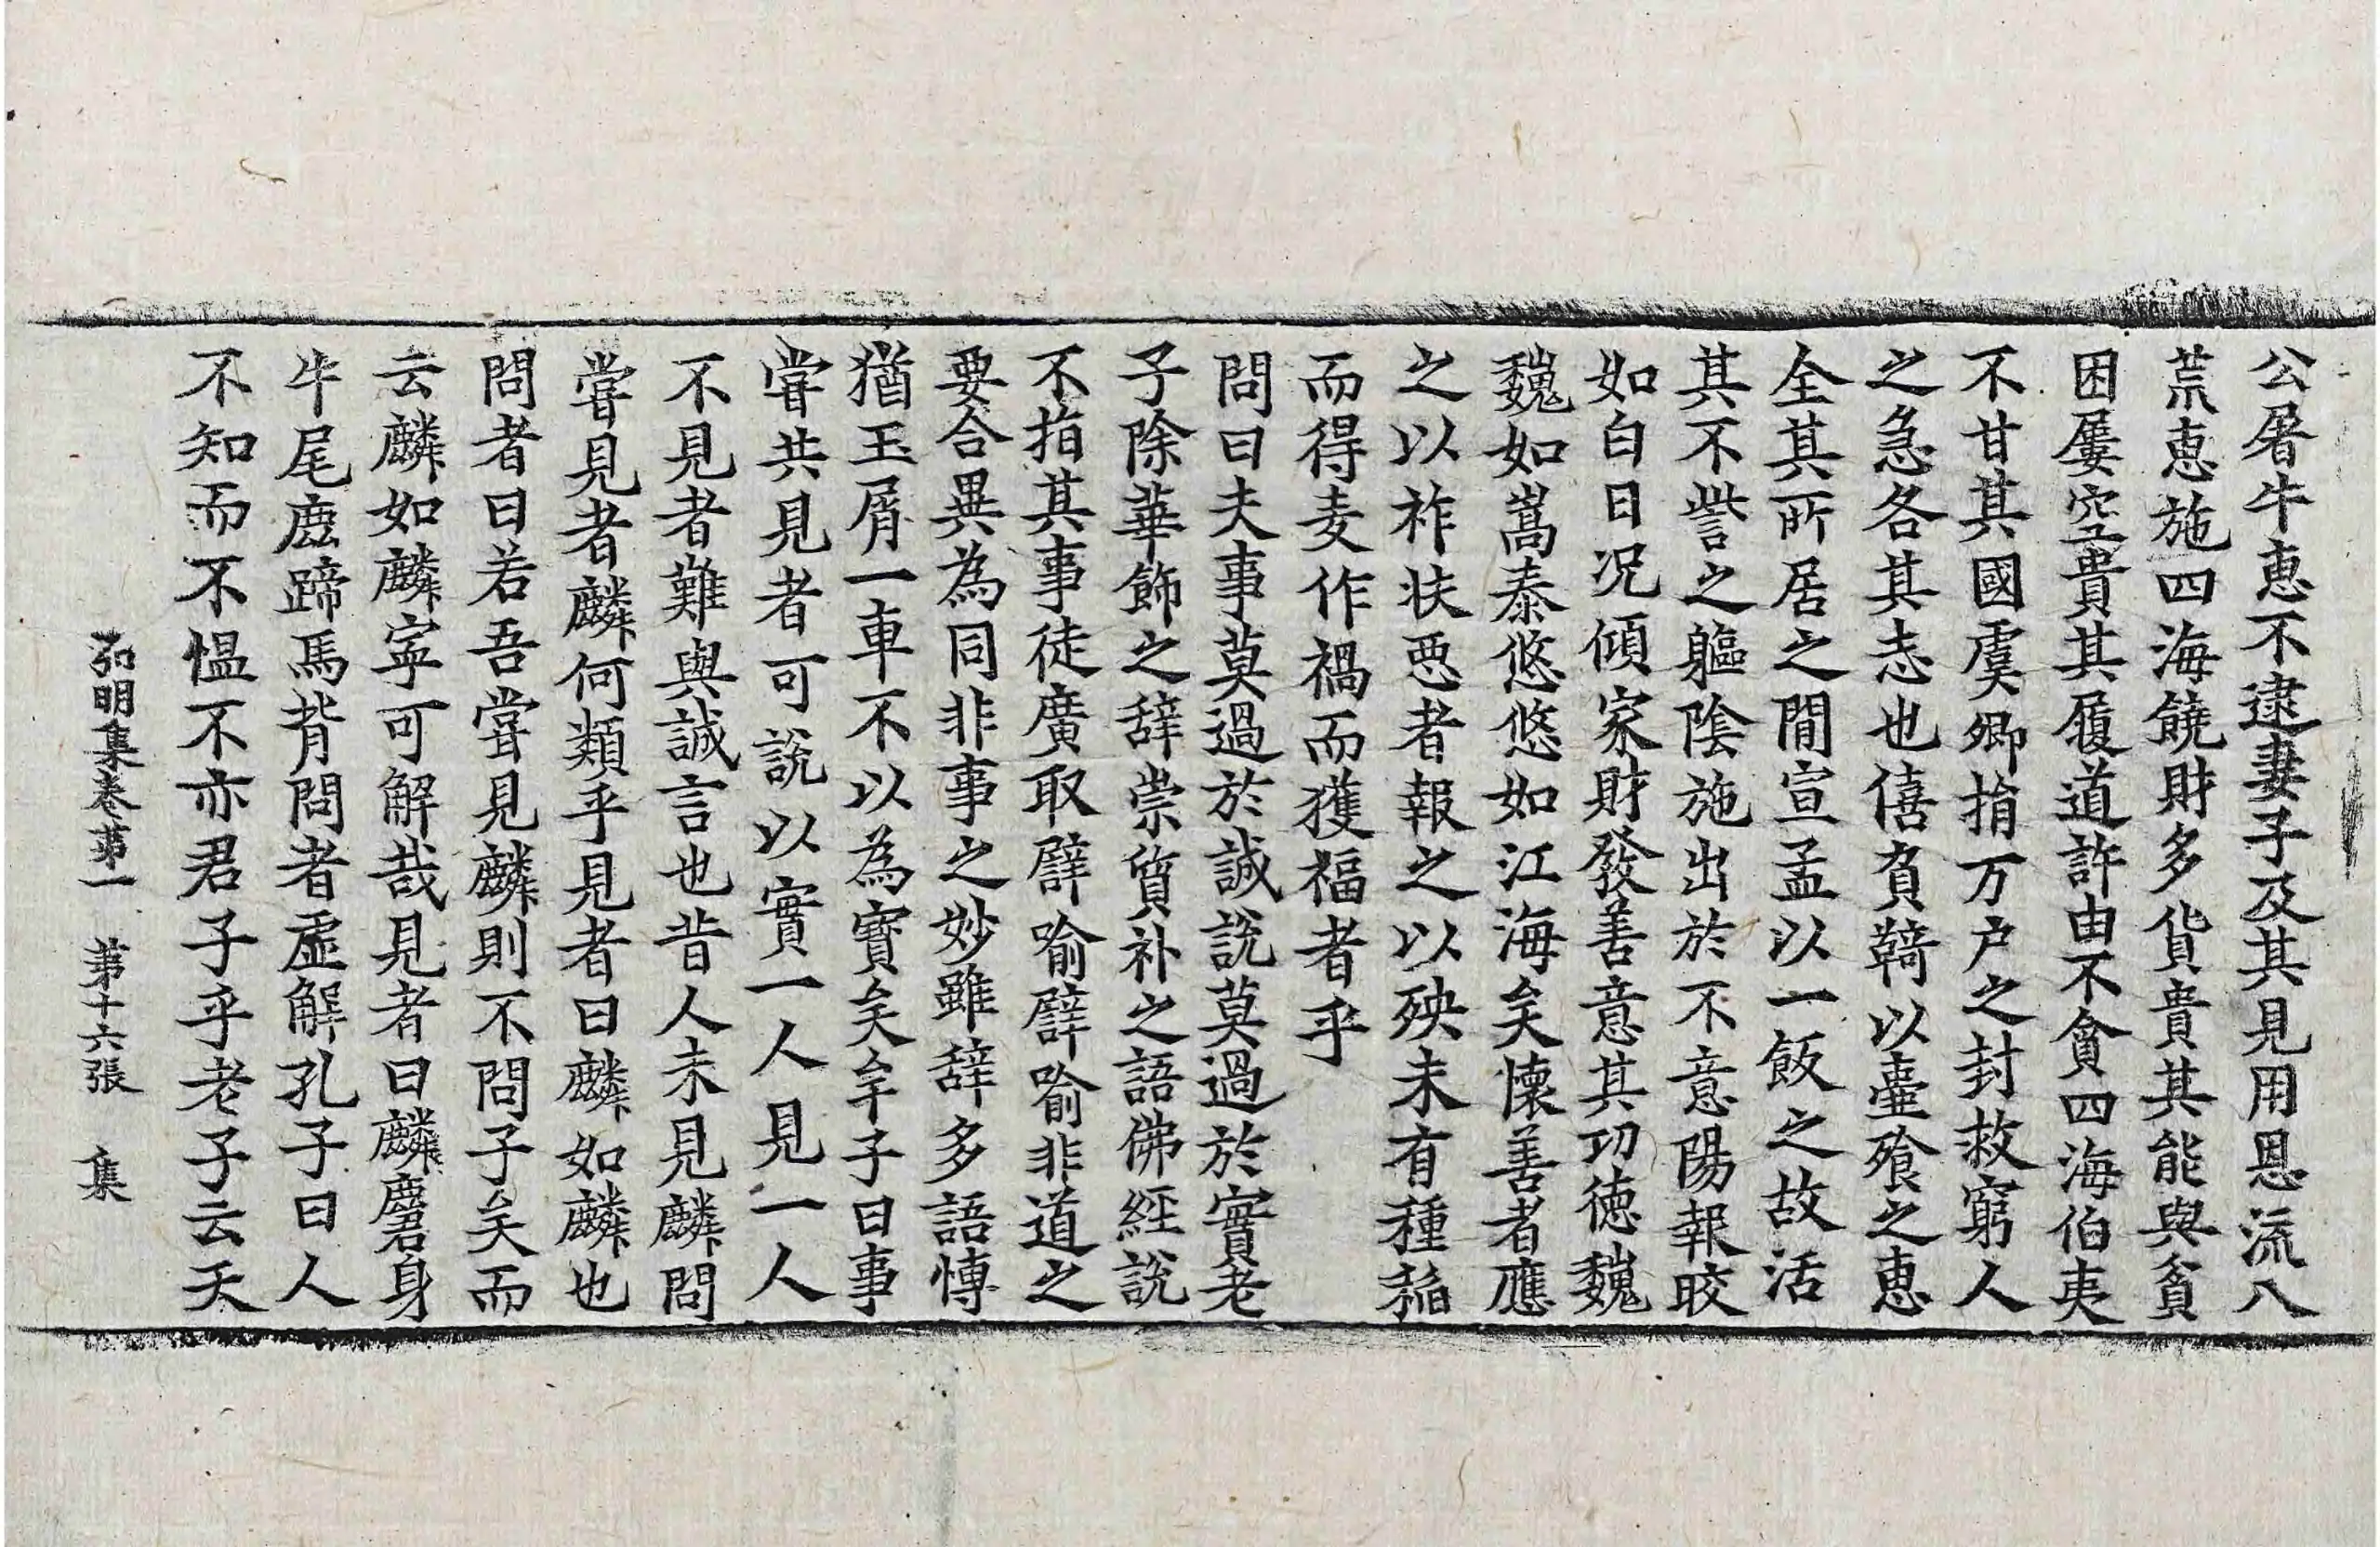 公屠牛惠不逮妻子及其見用恩流八
荒恵施四海饒財多貨貴其能與貧
困屢空貴其履道許由不貪四海伯夷
不甘其國虞卿捐万户之封救窮人
之急各其志也僖負鞿以壷飱之恵
全其所居之閒宣孟以一飯之故活
其不訾之軀陰施出於不意陽報晈
如白日况傾家財發善意其功徳魏
魏如嵩泰悠悠如江海矣懷善者應
之以祚挾惡者報之以殃未有種稻
而得麦作禍而獲福者乎
問曰夫事莫過於誠說莫過於實老
子除華飾之辞崇質朴之語佛經說
不指其事徒廣取譬喻譬喻非道之
要合異為同非事之妙雖辞多語愽
猶玉屑一車不以為寶矣牟子曰事
甞共見者可說以實一人見一人
不見者難與誠言也昔人未見麟問
甞見者麟何類乎見者曰麟如麟也
問者曰若吾甞見麟則不問子矣而
云麟如麟寜可解哉見者曰麟麏身
牛尾鹿蹄馬背問者虛解孔子曰人
不知而不愠不亦君子乎老子云天
弘明集卷第一　第十六張　集